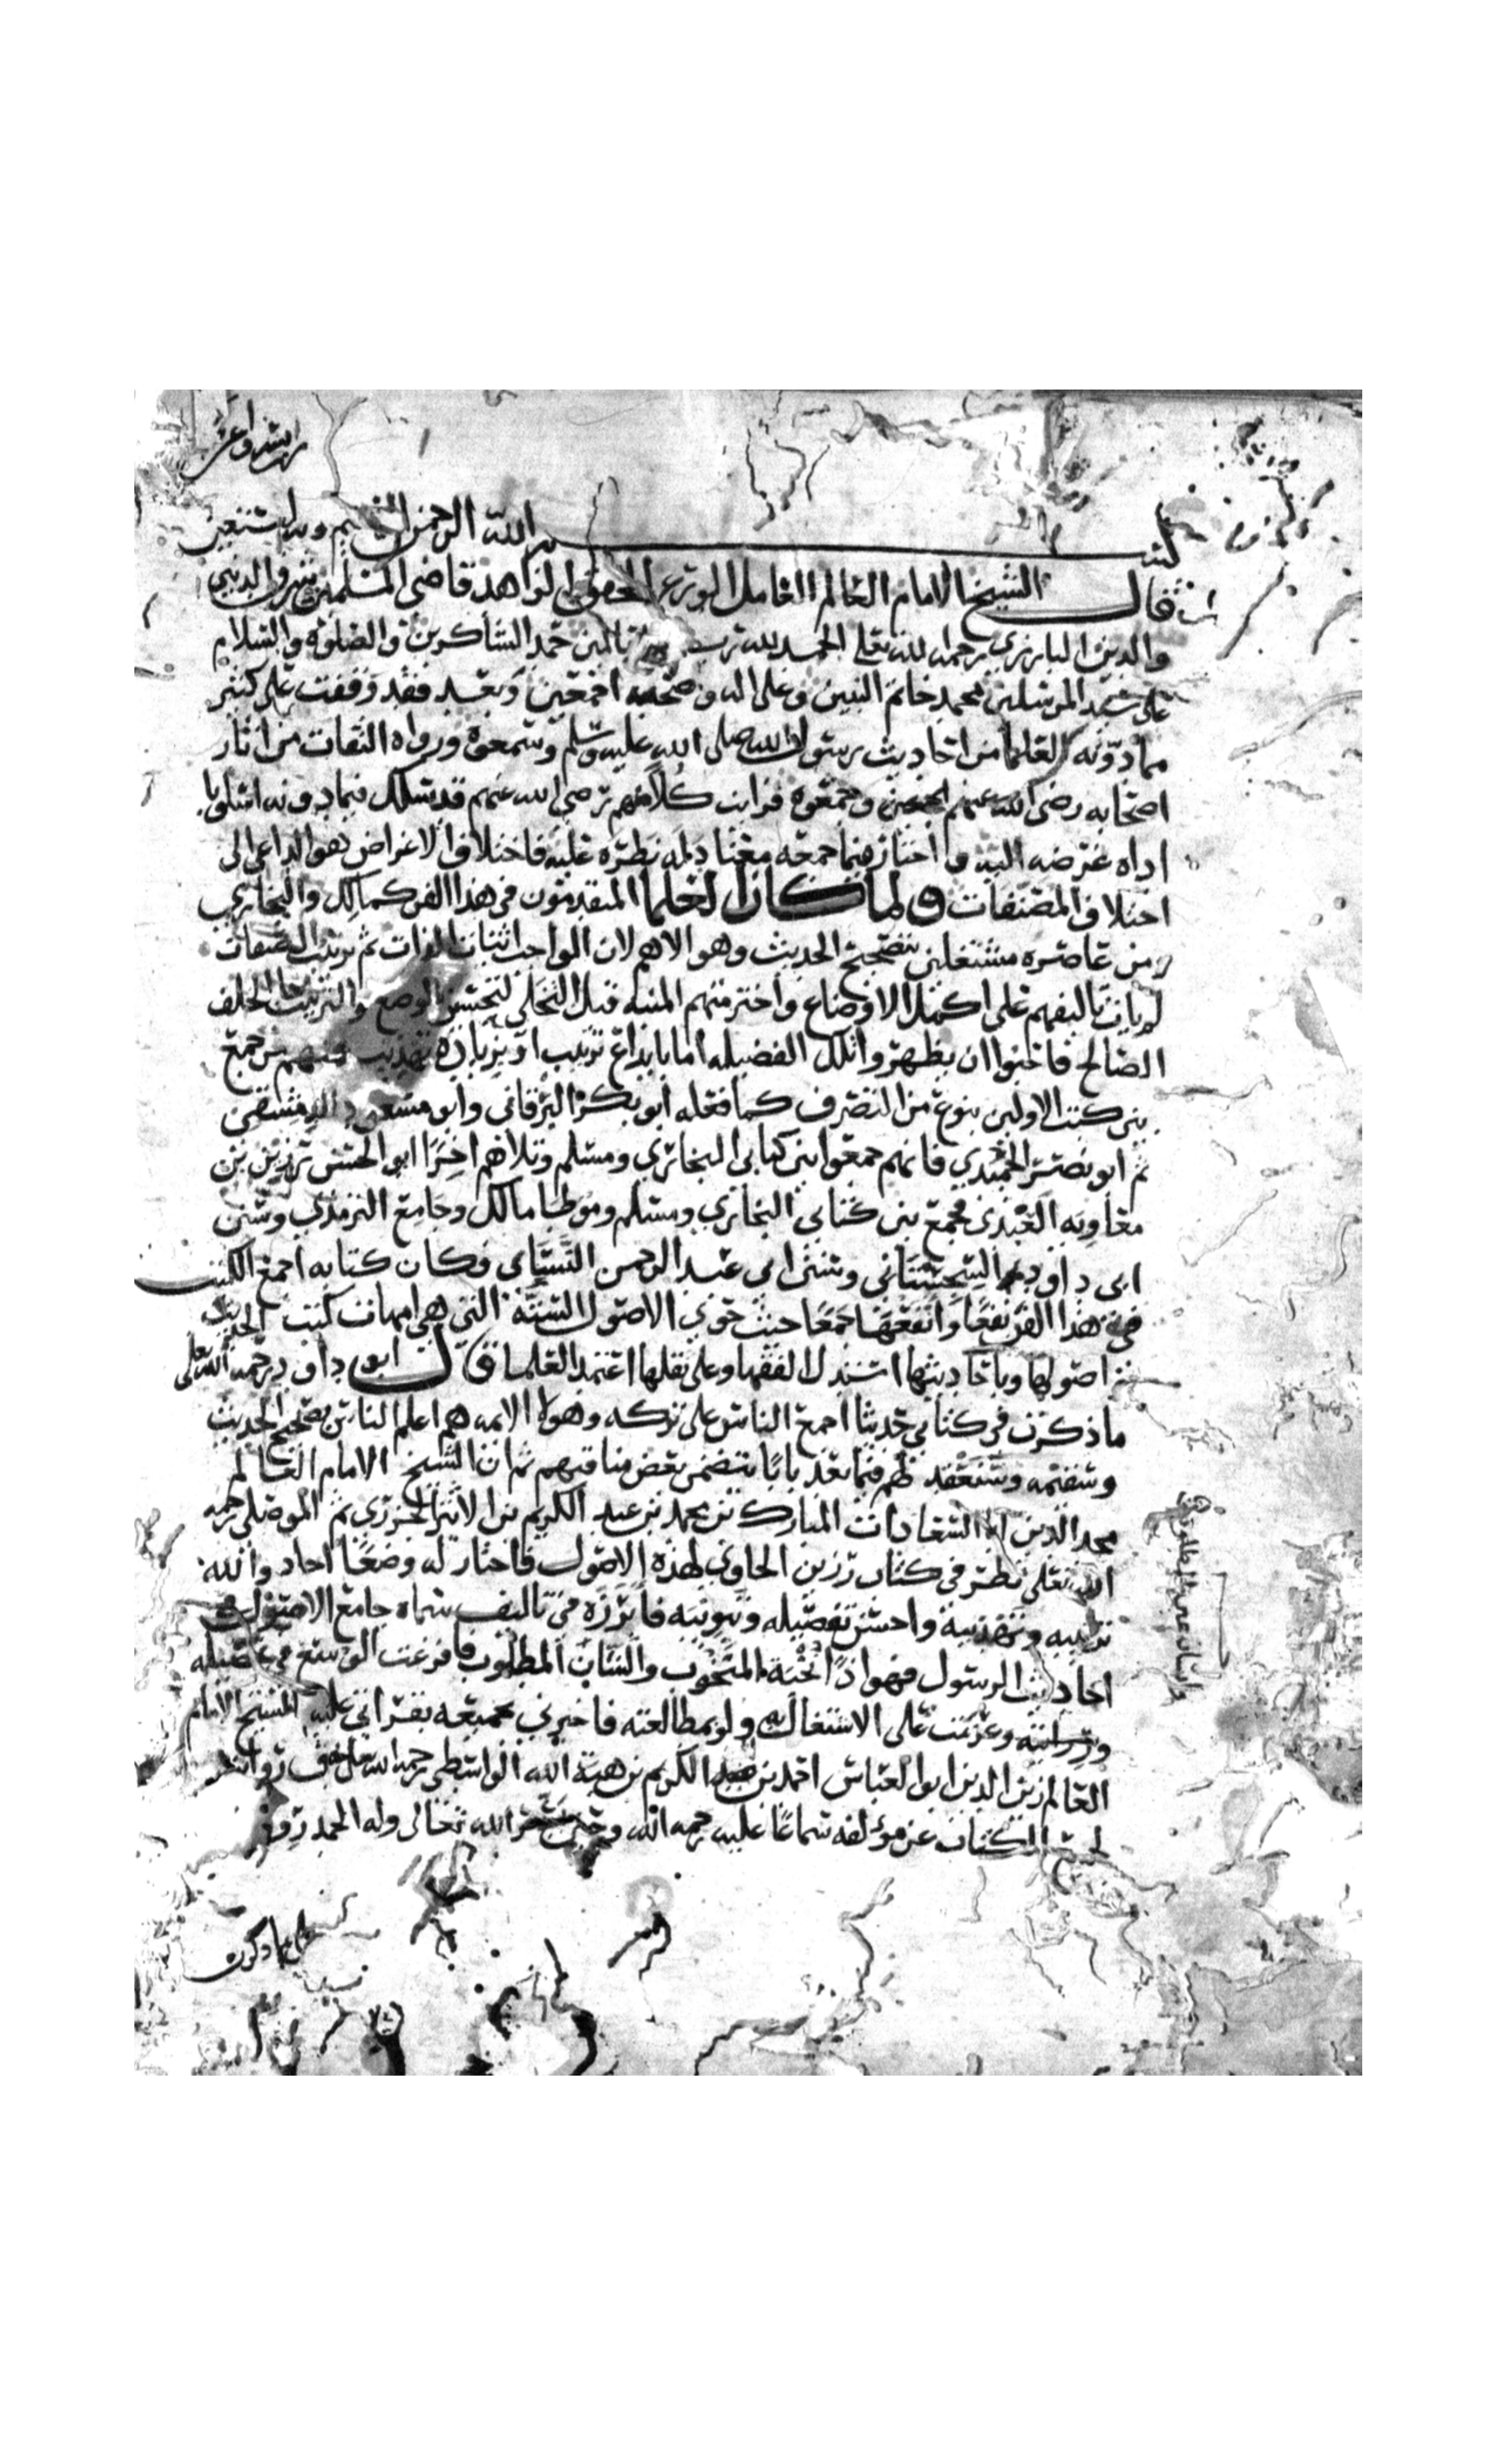 بسم الله الرحمن الرحيم وبه نستعين
قال الشيخ الامام العالم العامل الورع المحقق الزاهد قاضي المسلمين شرف الدين
والدين البارزي رحمه الله تعلى الحمد لله رب العالمين حمد الشاكرين والصلوة والسلام
على سيد المرسلين محمد خاتم النبيين وعلى اله وصحبه اجمعين وبعد فقد وقفت على كثير
مما دونه العلما من احاديث رسول الله صلى الله عليه وسلم وسمعوه ورواه الثقات من اثار
اصحابه رضي الله عنهم اجمعين وجمعوه فرايت كلا منهم رضي الله عنهم قد سلك فيما دونه اسلوبا
اداه غرضه اليه واختار فيما جمعه معنا دله نظره عليه فاختلاف الاغراض هو الداعي الى
اختلاف المصنفات ولما كان العلما المتقدمون في هذا الفن كمالك والبخاري
ومن عاصره مشتغلين بتصحيح الحديث وهو الاهم لان الواجب اثبات الذات ثم ترتيب الصفات
لم يات تاليفهم على اكمل الاوضاع واخترمتهم المنيه قبل التخلي لتحسين الوضع والترتيب الخلف
الصالح فاحبوا ان يظهروا تلك الفضيله اما بابداع ترتيب او بزيادة تهذيب فمنهم من جمع
بين كتب الاولين بنوع من التصرف كما فعله ابو بكر البرقاني وابو مسعود الدمشقي
ثم ابو نصر الحميدي فانهم جمعوا بين كتابي البخاري ومسلم وتلاهم اخرا ابو الحسن رزين بن
معاويه العبدري فجمع بين كتابي البخاري ومسلم وموطا مالك وجامع الترمذي وسنن
ابي داود السجستاني وسنن ابي عبد الرحمن النسائي فكان كتابه اجمع الكتب
في هذا الفن نفعا وانفعها جمعا حيث حوى الاصول الستة التي هي امهات كتب الحديث
اصولها وباحاديثها استدل الفقها وعلى نقلها اعتمد العلما قال ابو داود رحمه الله تعلى
ما ذكرت في كتابي حديثا اجمع الناس على تركه وهولا الايمه هم اعلم الناس بصحيح الحديث
وسقيمه وسنعقد لهم فيما بعد بابا يتضمن بعض مناقبهم ثم ان الشيخ الامام العالم
مجد الدين ابا السعادات المبارك بن محمد بن عبد الكريم بن الاثير الجزري ثم الموصلي رحمه
الله تعلى نظر في كتاب رزين الحاوي لهذه الاصول فاختار له وضعا اجاد والله
ترتيبه وتهذيبه واحسن تفصيله وتبويبه فابرزه في تاليف سماه جامع الاصول في
احاديث الرسول فهو اذا نخبة المنخوب واللباب المطلوب فافرغت الوسع في تحصيله
ودراسته وعزمت على الاشتغال به ولو بمطالعته فاخبرني بجميعه بقراتي عليه الشيخ الامام
العالم زين الدين ابو العباس احمد بن عبد الكريم بن هبة الله الواسطي رحمه الله
الكتاب عن مولفه سماعا عليه رحمه الله الله تعالى وله الحمد